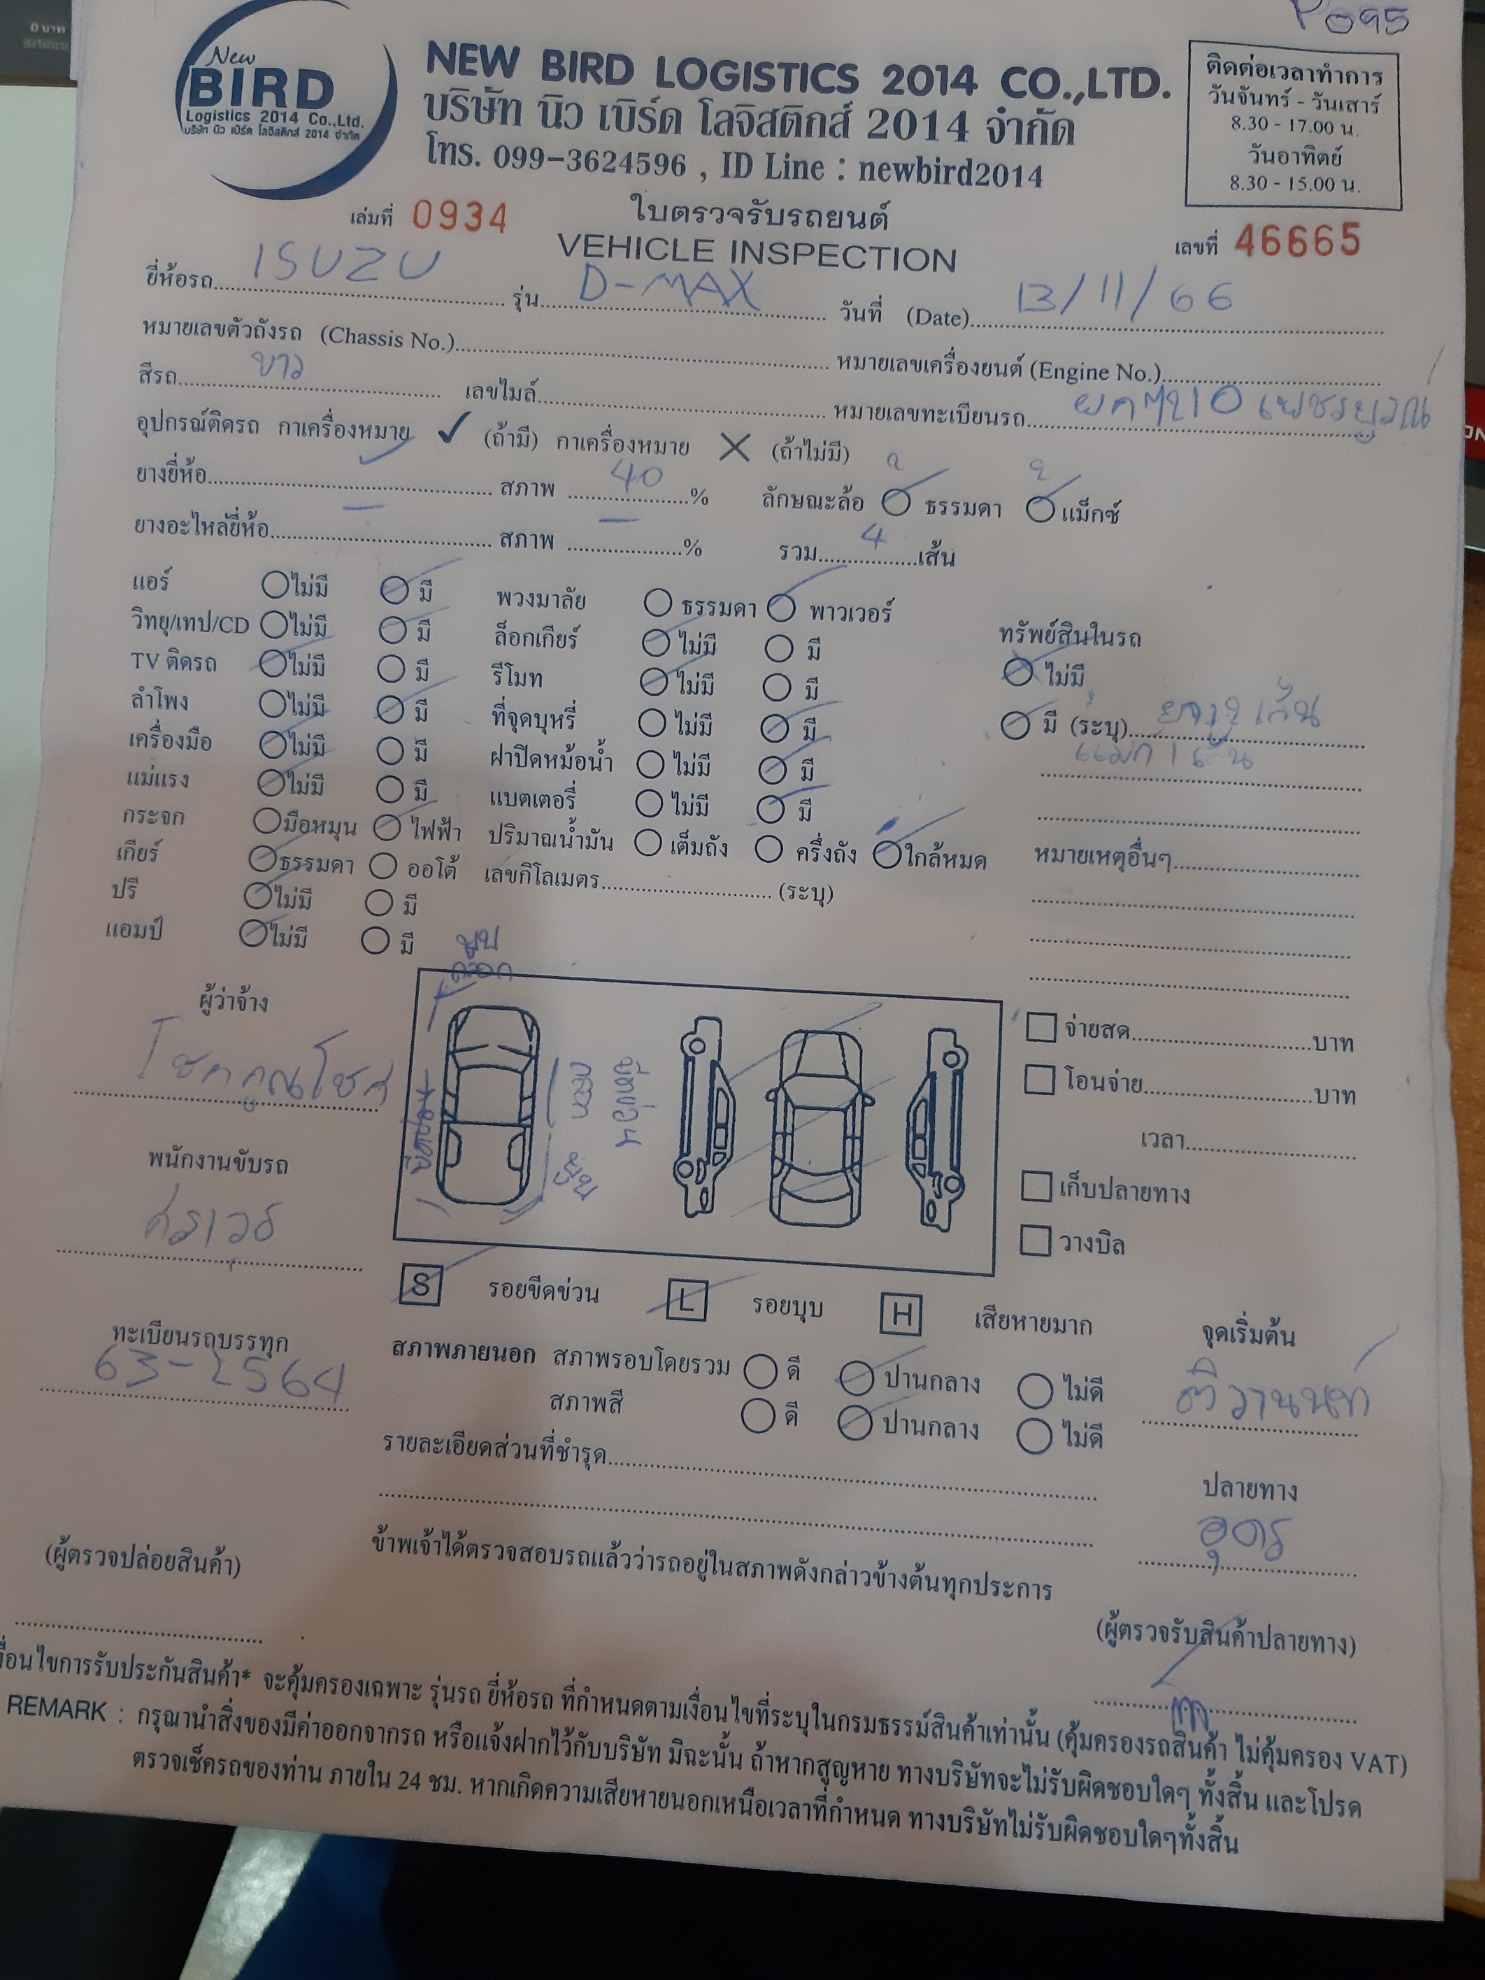 P095
New
BIRD
Logistics 2014 Co.,Ltd.
บริษัท นิว เบิร์ด โลจิสติกส์ 2014 จำกัด
NEW BIRD LOGISTICS 2014 CO.,LTD.
บริษัท นิว เบิร์ด โลจิสติกส์ 2014 จำกัด
โทร. 099-3624596 , ID Line : newbird2014
ติดต่อเวลาทำการ
วันจันทร์ - วันเสาร์
8.30 - 17.00 น.
วันอาทิตย์
8.30 - 15.00 น.
เล่มที่ 0934
ใบตรวจรับรถยนต์
VEHICLE INSPECTION
เลขที่ 46665
ยี่ห้อรถ ISUZU รุ่น D-MAX วันที่ (Date) 13/11/66
หมายเลขตัวถังรถ (Chassis No.) หมายเลขเครื่องยนต์ (Engine No.)
สีรถ ขาว เลขไมล์ หมายเลขทะเบียนรถ เพชรบูรณ์
อุปกรณ์ติดรถ กาเครื่องหมาย ✓ (ถ้ามี) กาเครื่องหมาย ✕ (ถ้าไม่มี)
ยางยี่ห้อ สภาพ 40 % ลักษณะล้อ ธรรมดา 2 แม็กซ์
ยางอะไหล่ยี่ห้อ – สภาพ – % รวม 4 เส้น
แอร์ ไม่มี มี พวงมาลัย ธรรมดา พาวเวอร์
วิทยุ/เทป/CD ไม่มี มี ล็อกเกียร์ ไม่มี มี ทรัพย์สินในรถ
TV ติดรถ ไม่มี มี รีโมท ไม่มี มี ไม่มี
ลำโพง ไม่มี มี ที่จุดบุหรี่ ไม่มี มี มี (ระบุ) เส้น
เครื่องมือ ไม่มี มี ฝาปิดหม้อน้ำ ไม่มี มี
แม่แรง ไม่มี มี แบตเตอรี่ ไม่มี มี
กระจก มือหมุน ไฟฟ้า ปริมาณน้ำมัน เต็มถัง ครึ่งถัง ใกล้หมด หมายเหตุอื่นๆ
เกียร์ ธรรมดา ออโต้ เลขกิโลเมตร (ระบุ)
ปรี ไม่มี มี
แอมป์ ไม่มี มี
ผู้ว่าจ้าง
โชคคูณโชค
พนักงานขับรถ
ทะเบียนรถบรรทุก
63-2564
จ่ายสด บาท
โอนจ่าย บาท
เวลา
เก็บปลายทาง
วางบิล
S รอยขีดข่วน L รอยบุบ H เสียหายมาก
สภาพภายนอก สภาพรอบโดยรวม ดี ปานกลาง ไม่ดี
สภาพสี ดี ปานกลาง ไม่ดี
รายละเอียดส่วนที่ชำรุด
จุดเริ่มต้น
ติวานนท์
ปลายทาง
อุดร
ข้าพเจ้าได้ตรวจสอบรถแล้วว่ารถอยู่ในสภาพดังกล่าวข้างต้นทุกประการ
(ผู้ตรวจปล่อยสินค้า)
(ผู้ตรวจรับสินค้าปลายทาง)
งื่อนไขการรับประกันสินค้า* จะคุ้มครองเฉพาะ รุ่นรถ ยี่ห้อรถ ที่กำหนดตามเงื่อนไขที่ระบุในกรมธรรม์สินค้าเท่านั้น (คุ้มครองรถสินค้า ไม่คุ้มครอง VAT)
REMARK : กรุณานำสิ่งของมีค่าออกจากรถ หรือแจ้งฝากไว้กับบริษัท มิฉะนั้น ถ้าหากสูญหาย ทางบริษัทจะไม่รับผิดชอบใดๆ ทั้งสิ้น และโปรด
ตรวจเช็ครถของท่าน ภายใน 24 ชม. หากเกิดความเสียหายนอกเหนือเวลาที่กำหนด ทางบริษัทไม่รับผิดชอบใดๆทั้งสิ้น